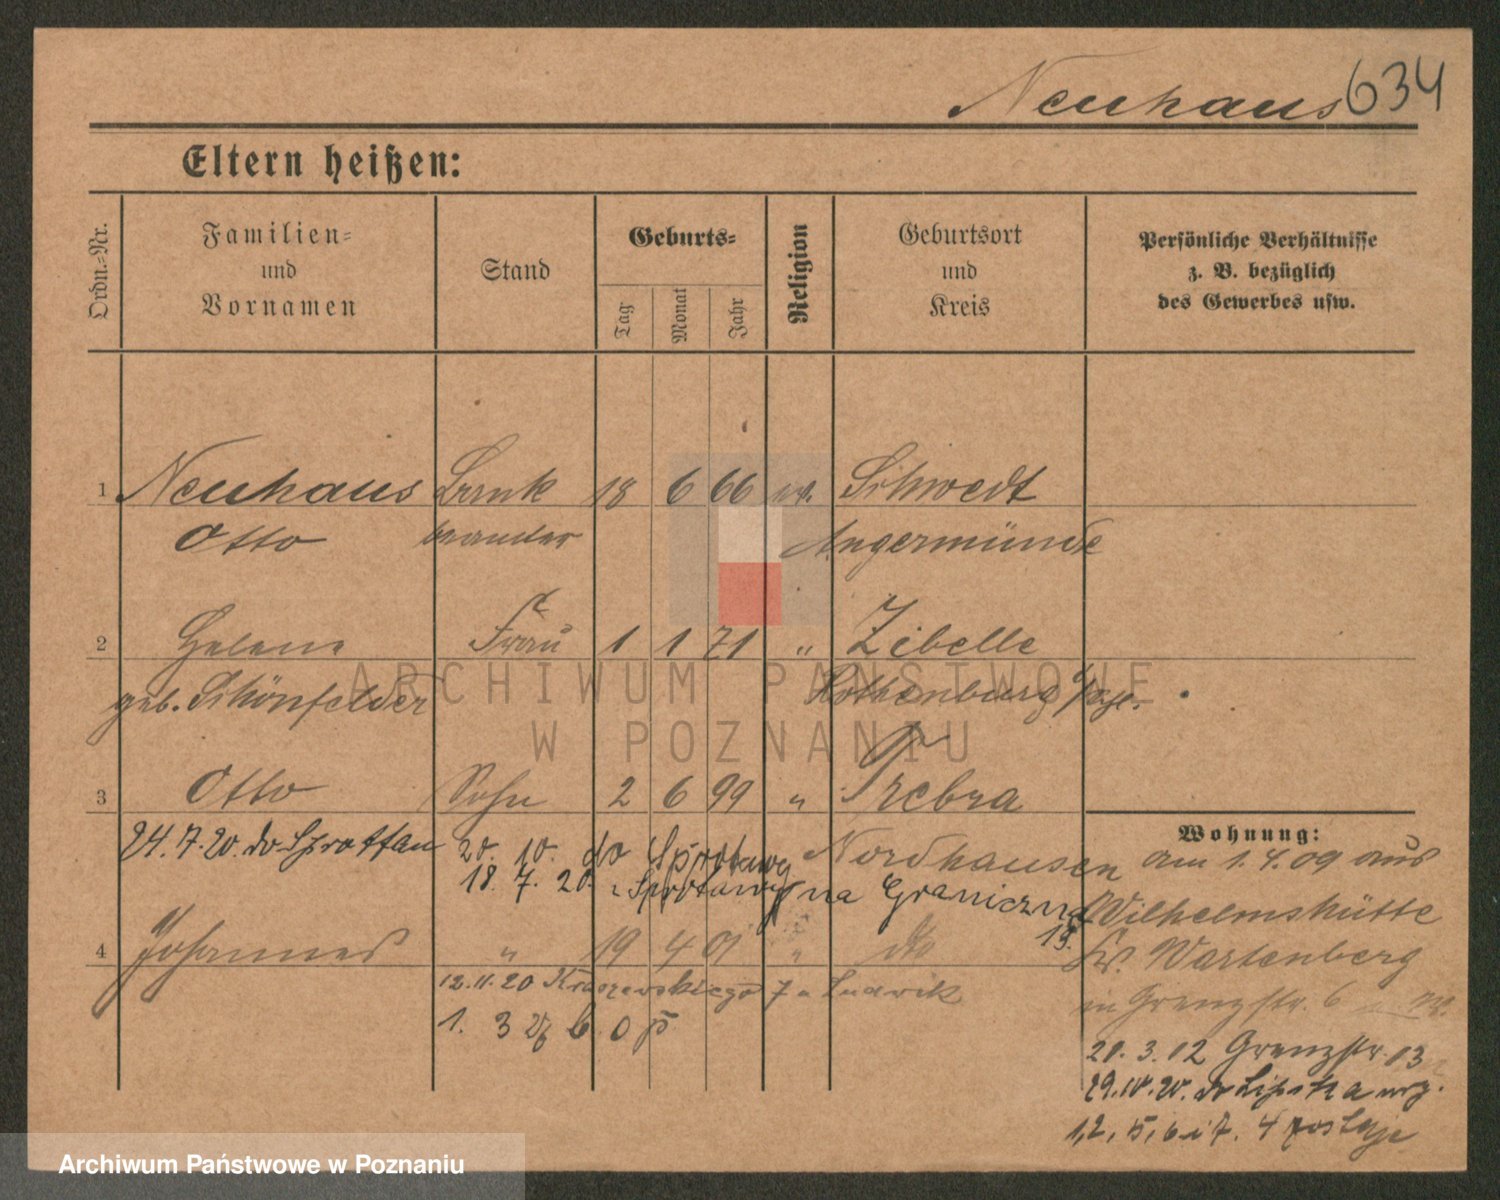 Neuhaus 634
Eltern heißen:
Ordn.-Nr.
Familien-
und
Vornamen
Stand
Geburts-
Tag
Monat
Jahr
Religion
Geburtsort
und
Kreis
Persönliche Verhältnisse
z. B. bezüglich
des Gewerbes usw.
1 Neuhaus Bank 18 6 66 ev. Schwedt
Otto beamter Angermünde
2 Helene Frau 1 1 71 " Zibelle
geb. Schönfelder Rothenburg
3 Otto Sohn 2 6 99 " Trebra
Wohnung:
24.7.20. do Sprottau 20. 10. do Sprotawy Nordhausen am 1.4.09 aus
18. 7. 20. " Sprotawy na Graniczną Wilhelmshütte
13.
4 Johannes " 19 4 01 " dto Kr. Wartenberg
12.11.20 Kraszewskiego 7 u Ludwik
in Grenzstr. 6
1. 3
20. 3. 12 Grenzstr. 13
29.10.20. do Lipska
1, 2, 5, 6 i 7. 4 zostaje
ARCHIWUM PAŃSTWOWE
W POZNANIU
Archiwum Państwowe w Poznaniu